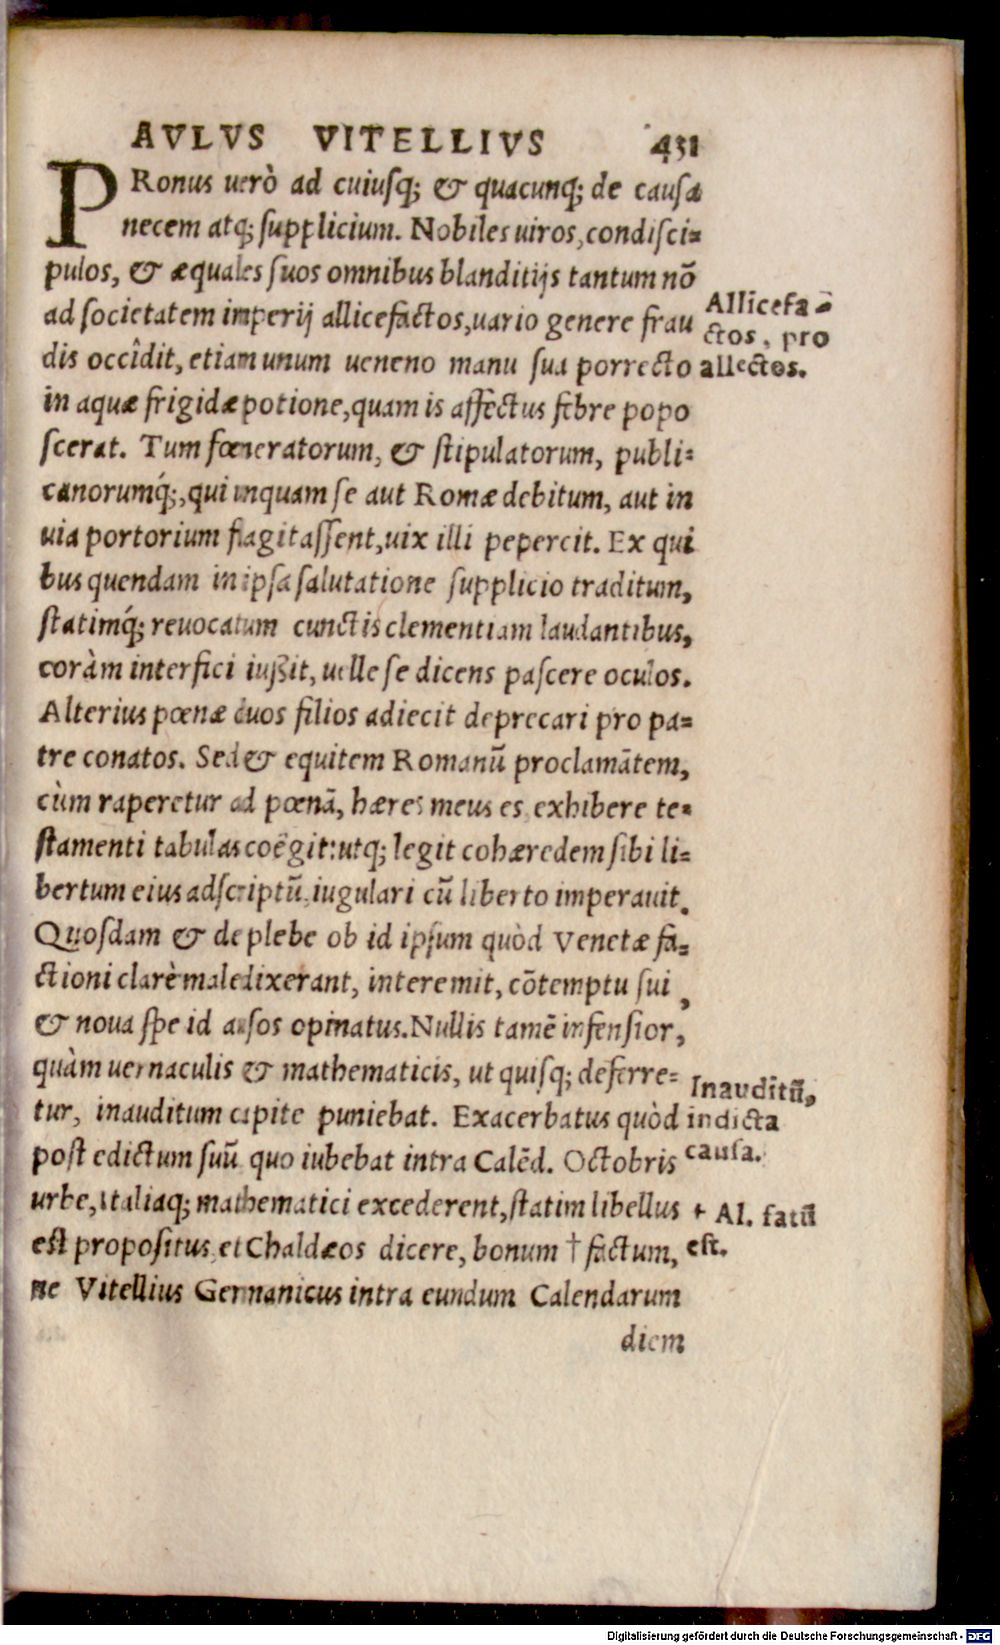 AVLVS VITELLIVS 431
PRonus uerò ad cuiusq; & quacunq; de causa
necem atq; supplicium. Nobiles uiros, condisci=
pulos, & æquales suos omnibus blanditijs tantum nō
ad societatem imperij allicefactos, uario genere frau
Allicefa=
ctos, pro
allectos.
dis occîdit, etiam unum ueneno manu sua porrecto
in aquæ frigidæ potione, quam is affectus febre popo
scerat. Tum fœneratorum, & stipulatorum, publi=
canorumq́;, qui unquam se aut Romæ debitum, aut in
uia portorium flagitassent, uix illi pepercit. Ex qui
bus quendam in ipsa salutatione supplicio traditum,
statimq́; reuocatum cunctis clementiam laudantibus,
coràm interfici iußit, uelle se dicens pascere oculos.
Alterius pœnæ duos filios adiecit deprecari pro pa=
tre conatos. Sed & equitem Romanū proclamātem,
cùm raperetur ad pœnā, hæres meus es, exhibere te=
stamenti tabulas coëgit: utq; legit cohæredem sibi li=
bertum eius adscriptū, iugulari cū liberto imperauit.
Quosdam & de plebe ob id ipsum quòd Venetæ fa=
ctioni clarè maledixerant, interemit, cōtemptu sui,
& noua spe id ausos opinatus. Nullis tamē infensior,
quàm uernaculis & mathematicis, ut quisq; deferre=
tur, inauditum capite puniebat. Exacerbatus quòd
Inauditū,
indicta
causa.
post edictum suū quo iubebat intra Calēd. Octobris
urbe, Italiaq; mathematici excederent, statim libellus
† Al. fatū
est.
est propositus, et Chaldæos dicere, bonum † factum,
ne Vitellius Germanicus intra eundum Calendarum
diem
Digitalisierung gefördert durch die Deutsche Forschungsgemeinschaft - DFG